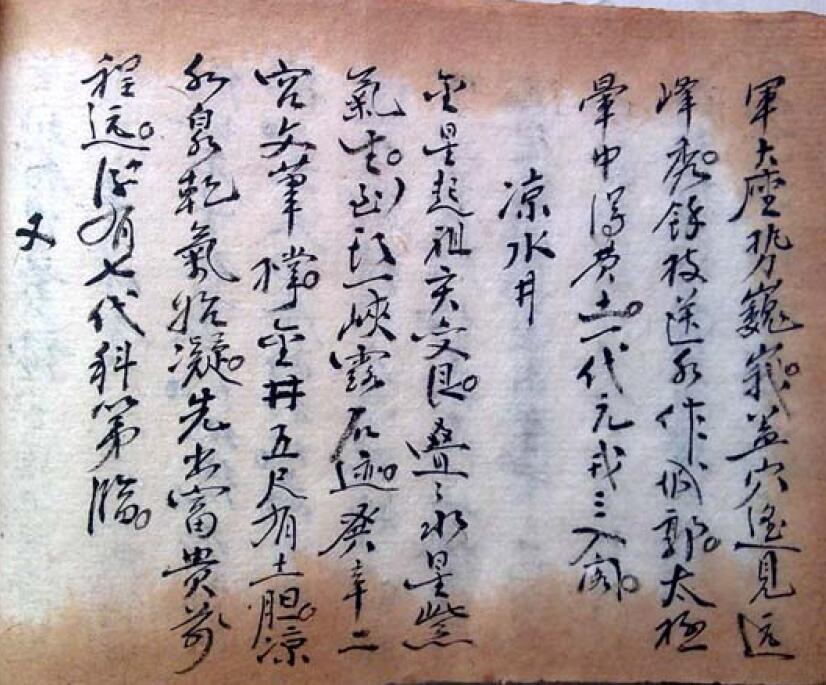 軍大座势巍峩。盖穴遥見远
峰秀。餘枝送水作城郭。太極
暈中得黄土。一代元戎三入阁。
凉水井
金星起祖亥交艮。叠〻水星紫
氣生。到頭一峽露石迹。癸辛二
宫文筆撑。金井五尺有土胆。凉
水泉乾氣始凝。先出富貴前
程远。後有七代科第臨。
又